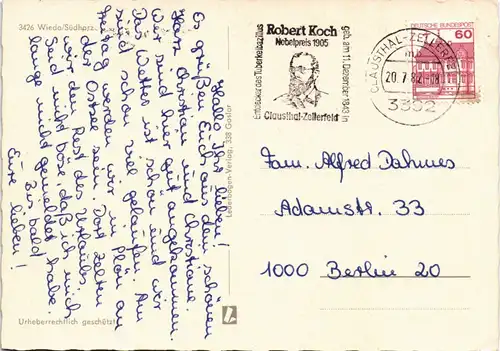 3426 Wieda/Südharz
Hallo Ihr lieben!
Es grüßen Euch aus dem schönen
Harz Christian und Christiane.
Wir sind hier gut angekommen.
Das Wetter ist schön und wir
sind schon viel gelaufen. Am
Freitag werden wir in Plön an
der Ostsee sein. Dort zelten
wir den Rest des Urlaubs.
Seid nicht böse, daß ich mich
lange nicht gemeldet habe.
Bis bald
Eure lieben!
Urheberrechtlich geschützt
Leberbogen-Verlag, 338 Goslar
Entdecker des Tuberkelbazillus
Robert Koch
Nobelpreis 1905
geb. am 11. Dezember 1843 in
Clausthal-Zellerfeld
CLAUSTHAL-ZELLERFELD
20.7.82-18
3392
DEUTSCHE BUNDESPOST
60
Fam. Alfred Dahmes
Adamstr. 33
1000 Berlin 20